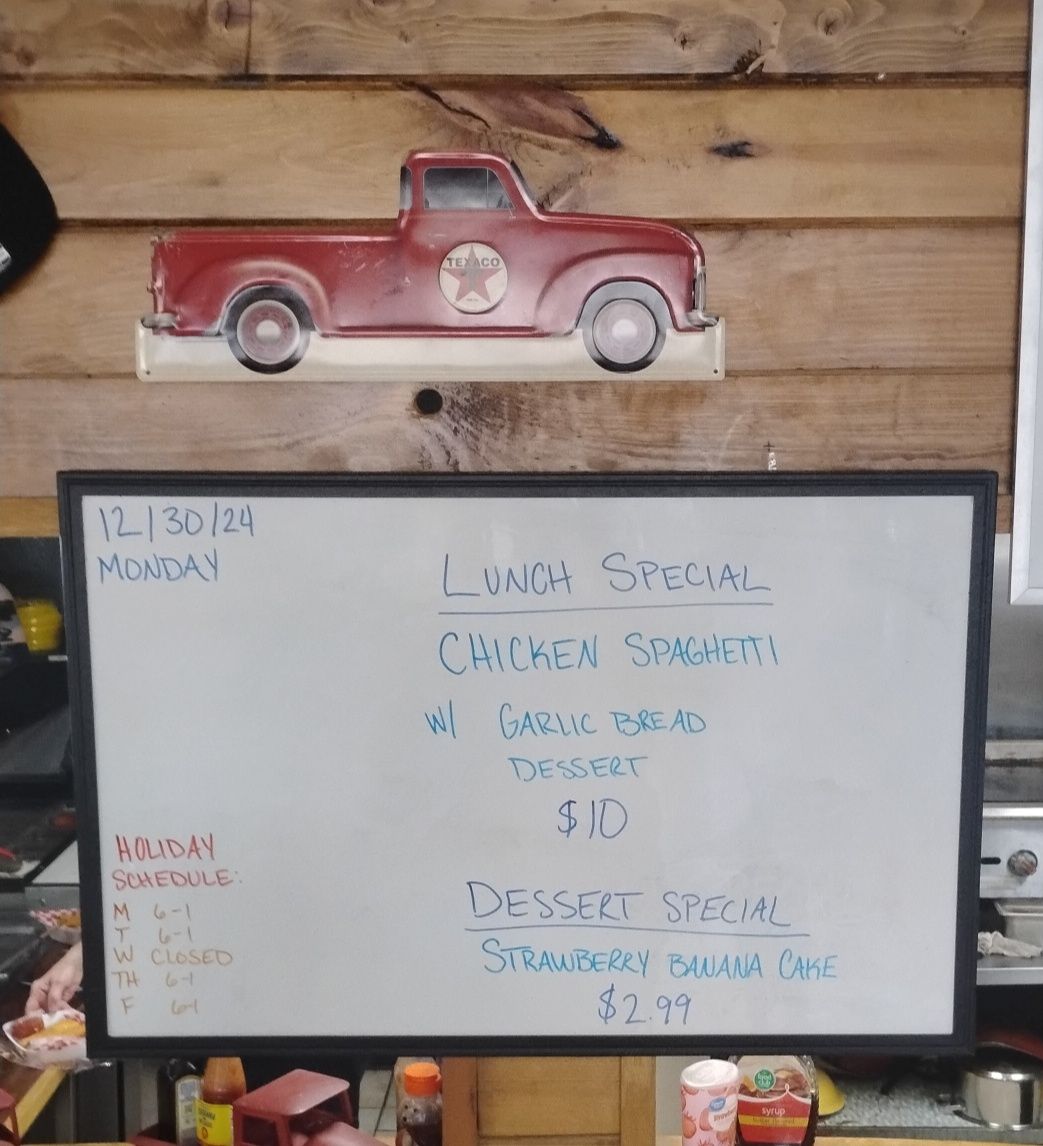 TEXACO
12/30/24
MONDAY
LUNCH SPECIAL
CHICKEN SPAGHETTI
W/ GARLIC BREAD
DESSERT
$10
HOLIDAY
SCHEDULE:
M 6-1
T 6-1
W CLOSED
TH 6-1
F 6-1
DESSERT SPECIAL
STRAWBERRY BANANA CAKE
$2.99
food club
syrup